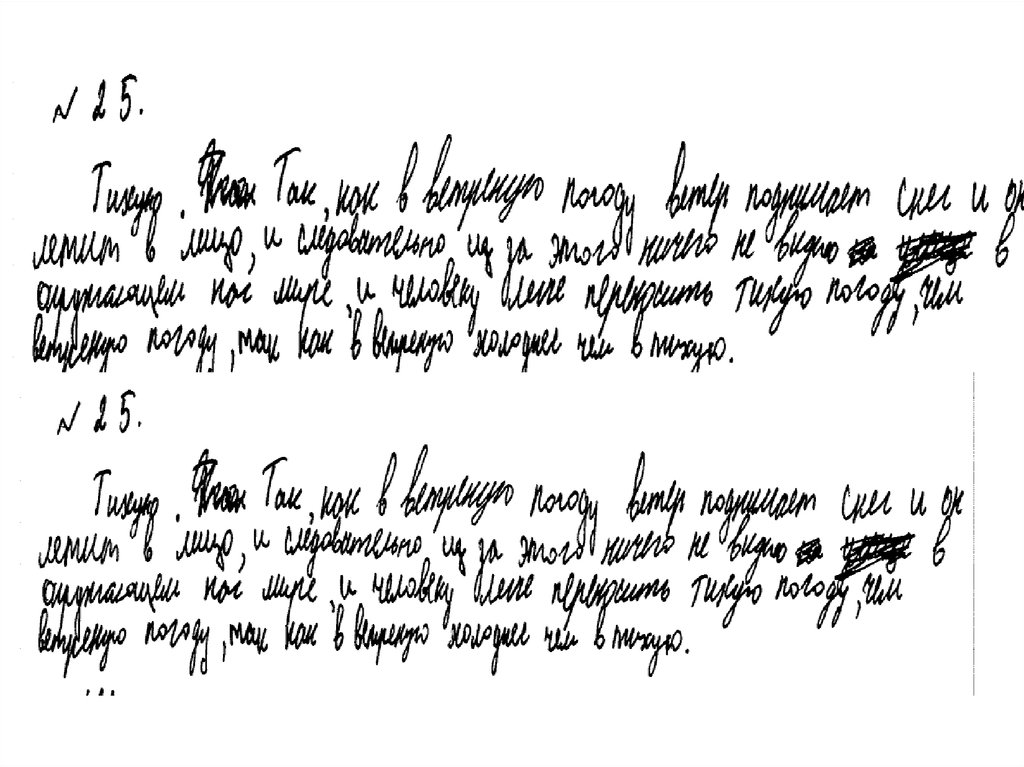 N 25.
Тихую. Так, как в ветреную погоду ветер поднимает снег и он
летит в лицо, и следовательно из за этого ничего не видно в
окружающем нас мире, и человеку легче переносить тихую погоду, чем
ветреную погоду, так как в ветреную холоднее чем в тихую.
N 25.
Тихую. Так, как в ветреную погоду ветер поднимает снег и он
летит в лицо, и следовательно из за этого ничего не видно в
окружающем нас мире, и человеку легче переносить тихую погоду, чем
ветреную погоду, так как в ветреную холоднее чем в тихую.